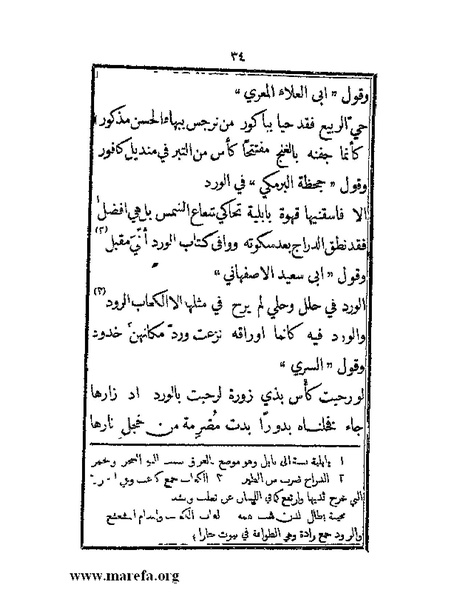 ٣٤
وقول « ابى العلاء المعري »
حيّ الربيع فقد حيا بباكور من نرجس ببهاء الحسن مذكور
كأنما جفنه بالغنج مفتتحًا كأس من التبر في منديل كافور
وقول « جحظة البرمكي » في الورد
الا فاسقنيها قهوة بابلية تحاكي شعاع الشمس بل هي افضل
فقد نطق الدراج بعد سكوته ووافى كتاب الورد أني مقبل (٢)
وقول « ابى سعيد الاصفهاني »
الورد في حلل وحلي لم يرح في مثلها الا الكعاب الرود (٣)
والورد فيه كانما اوراقه نزعت وردّ مكانهن خدود
وقول « السري »
لو رحبت كأس بذي زورة لرحبت بالورد اذ زارها
جاء فخلناه بدورًا بدت مضرمة من خجل نارها
١ بابلية نسبة الى بابل وهو موضع بالعراق ينسب اليه السحر والخمر
٢ الدراج ضرب من الطير ٣ الكعاب جمع كاعب وهي
التي خرج ثديها وارتفع كما في اللسان عن ثعلب
والرود جمع رادة وهي الطوافة في بيوت جاراتها
www.marefa.org